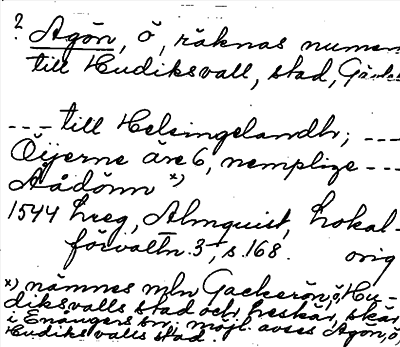 ? Agön, ö, räknas numera
till Hudiksvall, stad, Gävleb
--- till Helsingelandh; ---
Öijerne äre 6, nemplize ---
Aådönn x)
1544 hreg, Almquist, Lokal-
förvaltn. 3, s. 168. orig
x) nämnes mln Gackerön, ö, Hu-
diksvalls stad och heskär, skär
i Enångers sn. möjl. avses Agön, ö,
Hudiksvalls stad.